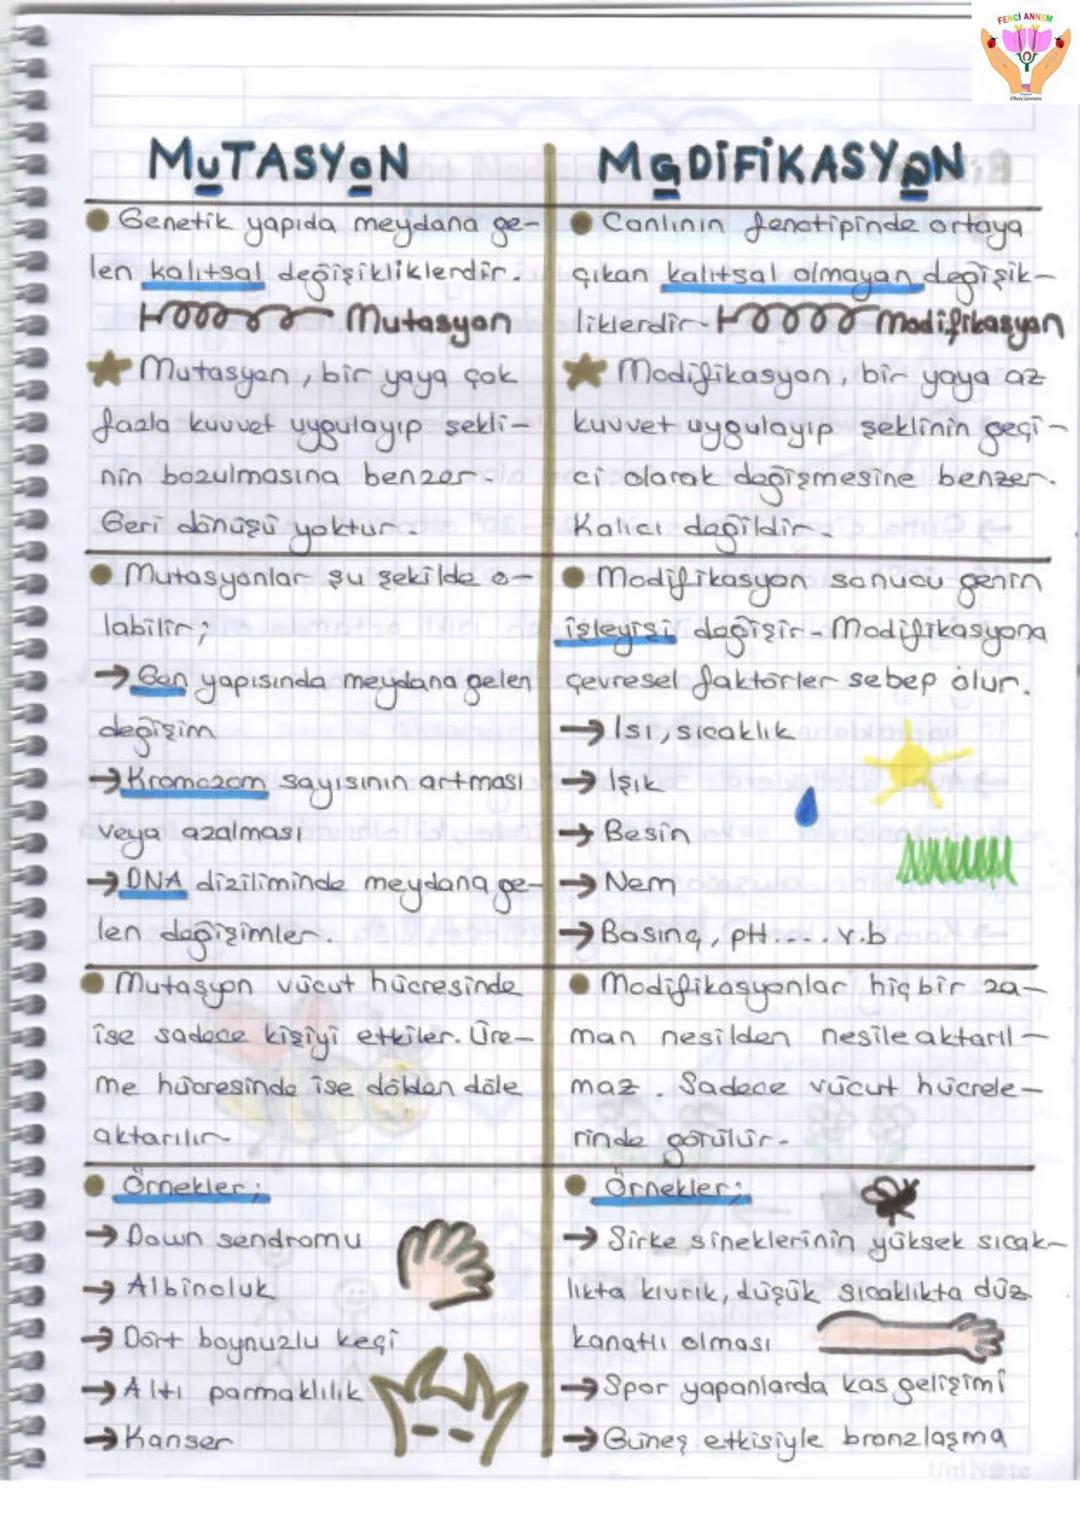 FENCİ ANNEM
MUTASYON
Genetik yapıda meydana ge-
len kalıtsal değişikliklerdir.
Mutasyon
Mutasyon, bir yaya çok
fazla kuvvet uygulayıp şekli-
nin bozulmasına benzer.
Geri dönüşü yoktur.
Mutasyonlar şu şekilde o-
labilir;
→ Gen yapısında meydana gelen
değişim
→ Kromozom sayısının artması
veya azalması
→ DNA diziliminde meydana ge-
len değişimler.
Mutasyon vücut hücresinde
ise sadece kişiyi etkiler. Üre-
me hücresinde ise dölden döle
aktarılır.
Örnekler;
→ Down sendromu
→ Albinoluk
→ Dört boynuzlu keçi
→ Altı parmaklılık
→ Kanser
MODİFİKASYON
Canlının fenotipinde ortaya
çıkan kalıtsal olmayan değişik-
liklerdir. Modifikasyon
Modifikasyon, bir yaya az
kuvvet uygulayıp şeklinin geçi-
ci olarak değişmesine benzer.
Kalıcı değildir.
Modifikasyon sonucu genin
işleyişi değişir. Modifikasyona
çevresel faktörler sebep olur.
→ Isı, sıcaklık
→ Işık
→ Besin
→ Nem
→ Basınç, pH.... v.b
Modifikasyonlar hiçbir za-
man nesilden nesile aktarıl-
maz. Sadece vücut hücrele-
rinde görülür.
Örnekler;
→ Sirke sineklerinin yüksek sıcak-
lıkta kıvrık, düşük sıcaklıkta düz
kanatlı olması
→ Spor yapanlarda kas gelişimi
→ Güneş etkisiyle bronzlaşma